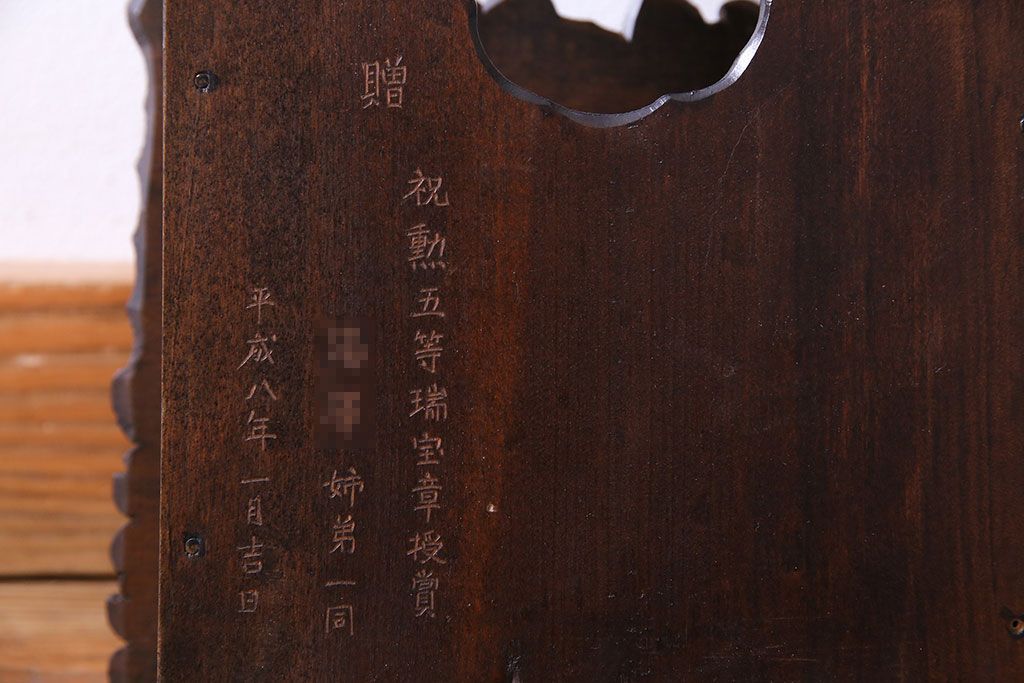 贈
祝勲五等瑞宝章授賞
姉弟一同
平成八年一月吉日